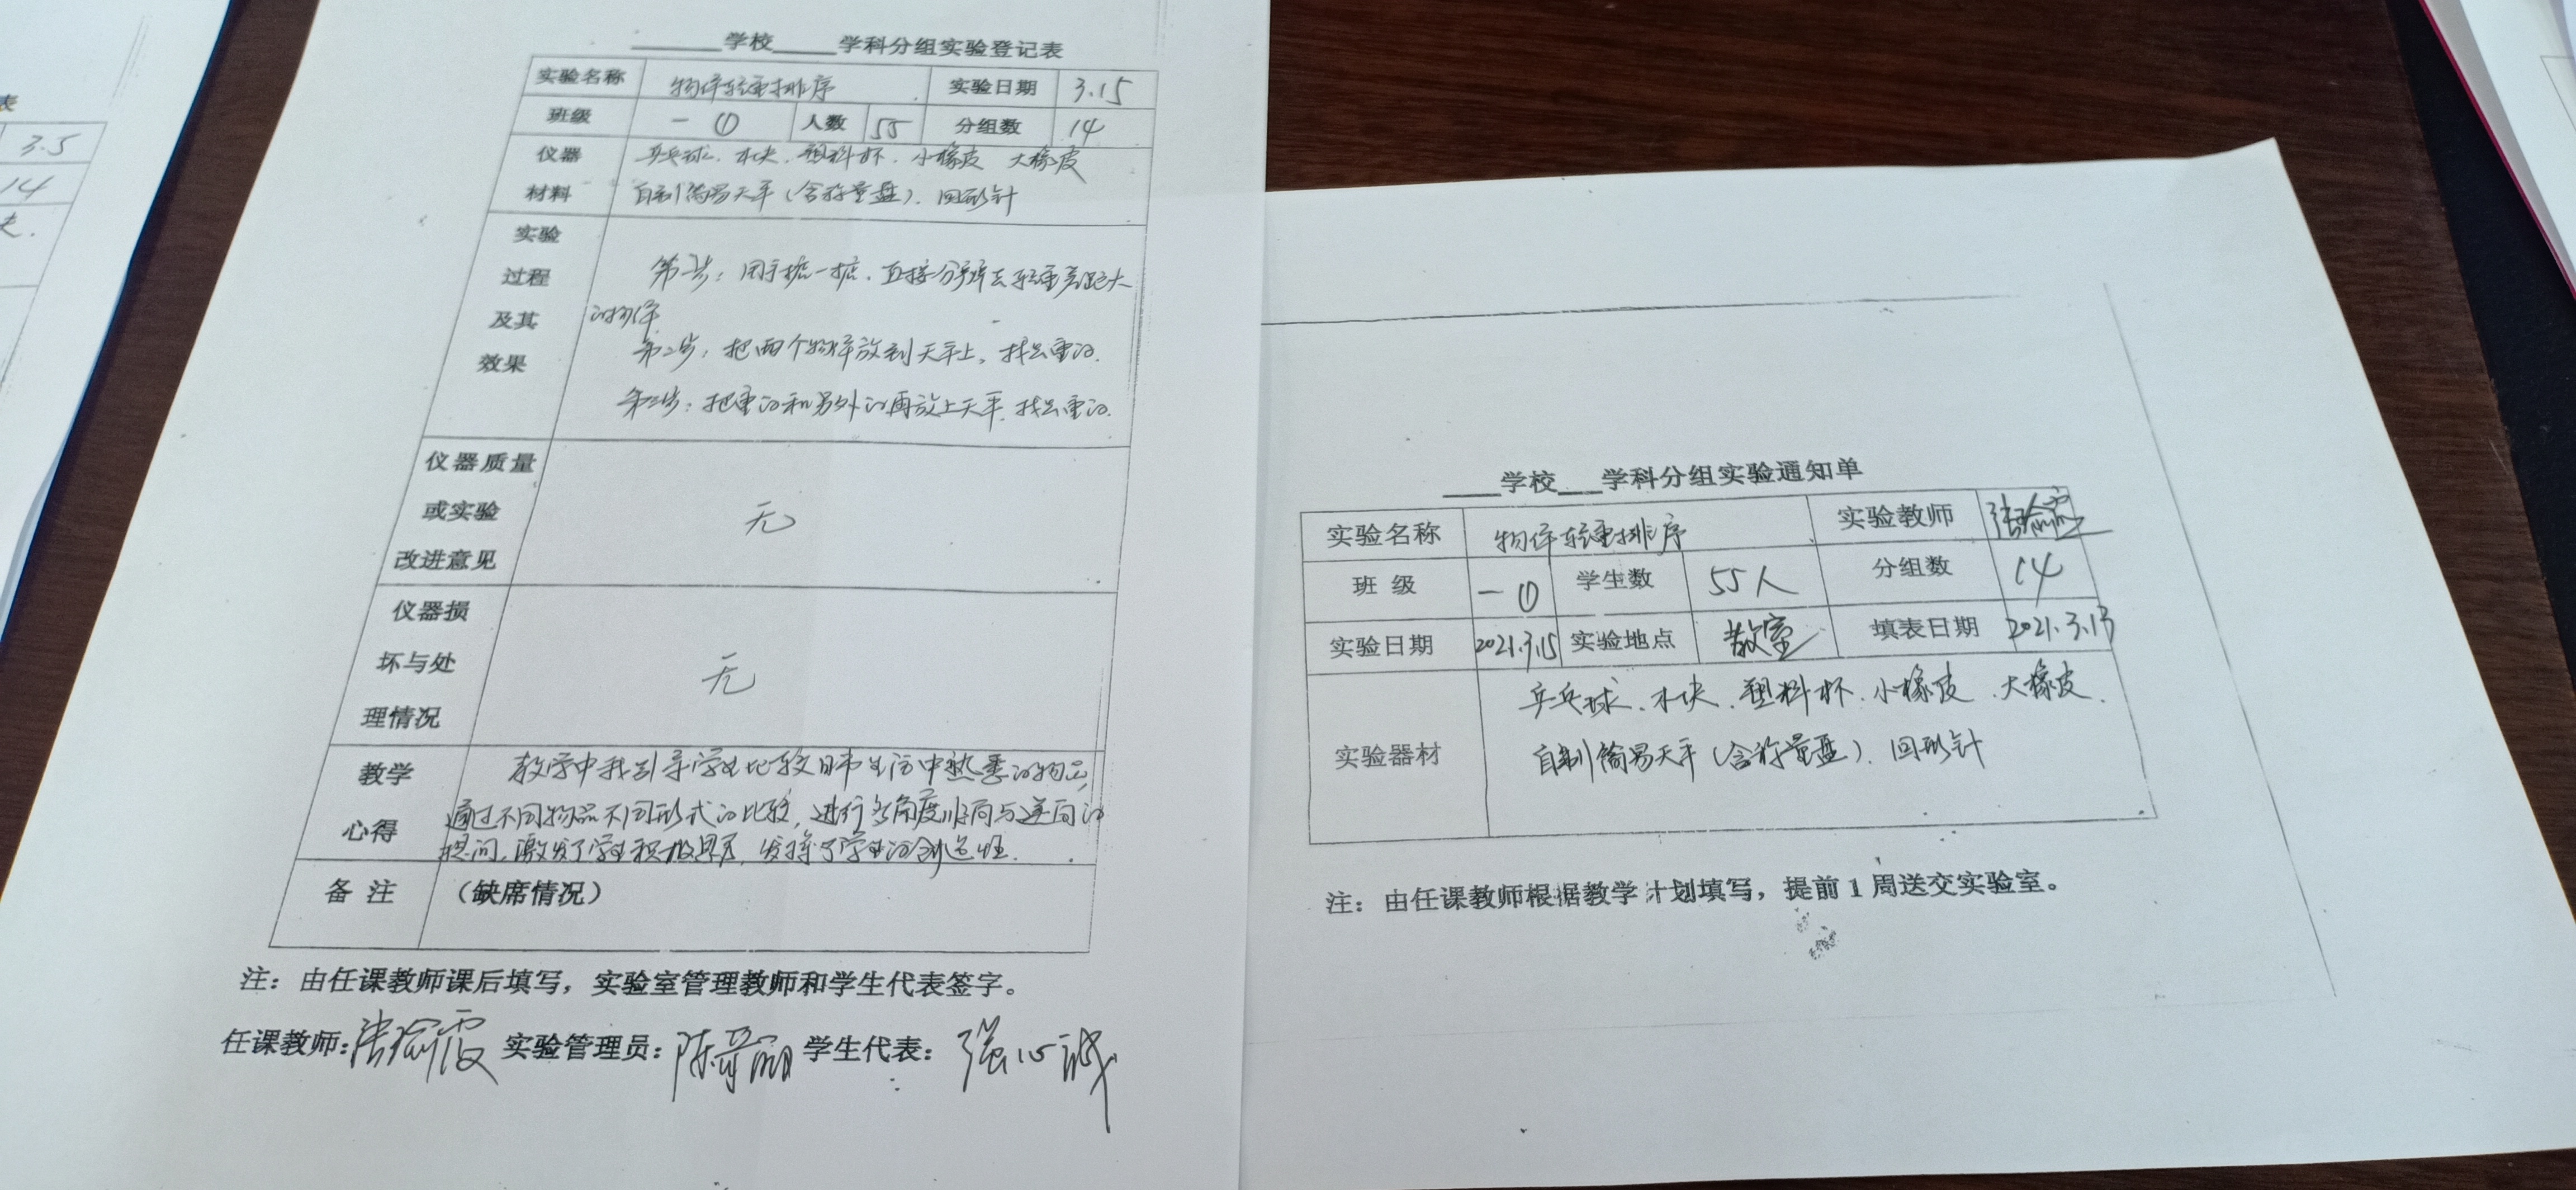 表
3.5
14
______学校_____学科分组实验登记表
实验名称 物体轻重排序 实验日期 3.15
班级 一① 人数 55 分组数 14
仪器材料 乒乓球、木块、塑料杯、小橡皮 大橡皮
自制简易天平(含称量盘)、回形针
实验过程及其效果
第一步：用手掂一掂，直接分辨出轻重差距大
的物体
第二步：把两个物体放到天平上，找出重的.
第三步：把重的和另外的再放上天平，找出重的.
仪器质量或实验改进意见 无
仪器损坏与处理情况 无
教学心得
教学中我引导学生比较日常生活中熟悉的物品，
通过不同物品不同形式的比较，进行多角度顺向与逆向的
提问，激发了学生积极思考，发挥了学生的创造性.
备 注 （缺席情况）
注：由任课教师课后填写，实验室管理教师和学生代表签字。
任课教师: 实验管理员: 学生代表:
____学校___学科分组实验通知单
实验名称 物体轻重排序 实验教师
班 级 一① 学生数 55人 分组数 14
实验日期 2021.3.15 实验地点 教室 填表日期 2021.3.13
实验器材 乒乓球、木块、塑料杯、小橡皮、大橡皮、
自制简易天平(含称量盘)、回形针
注：由任课教师根据教学计划填写，提前1周送交实验室。